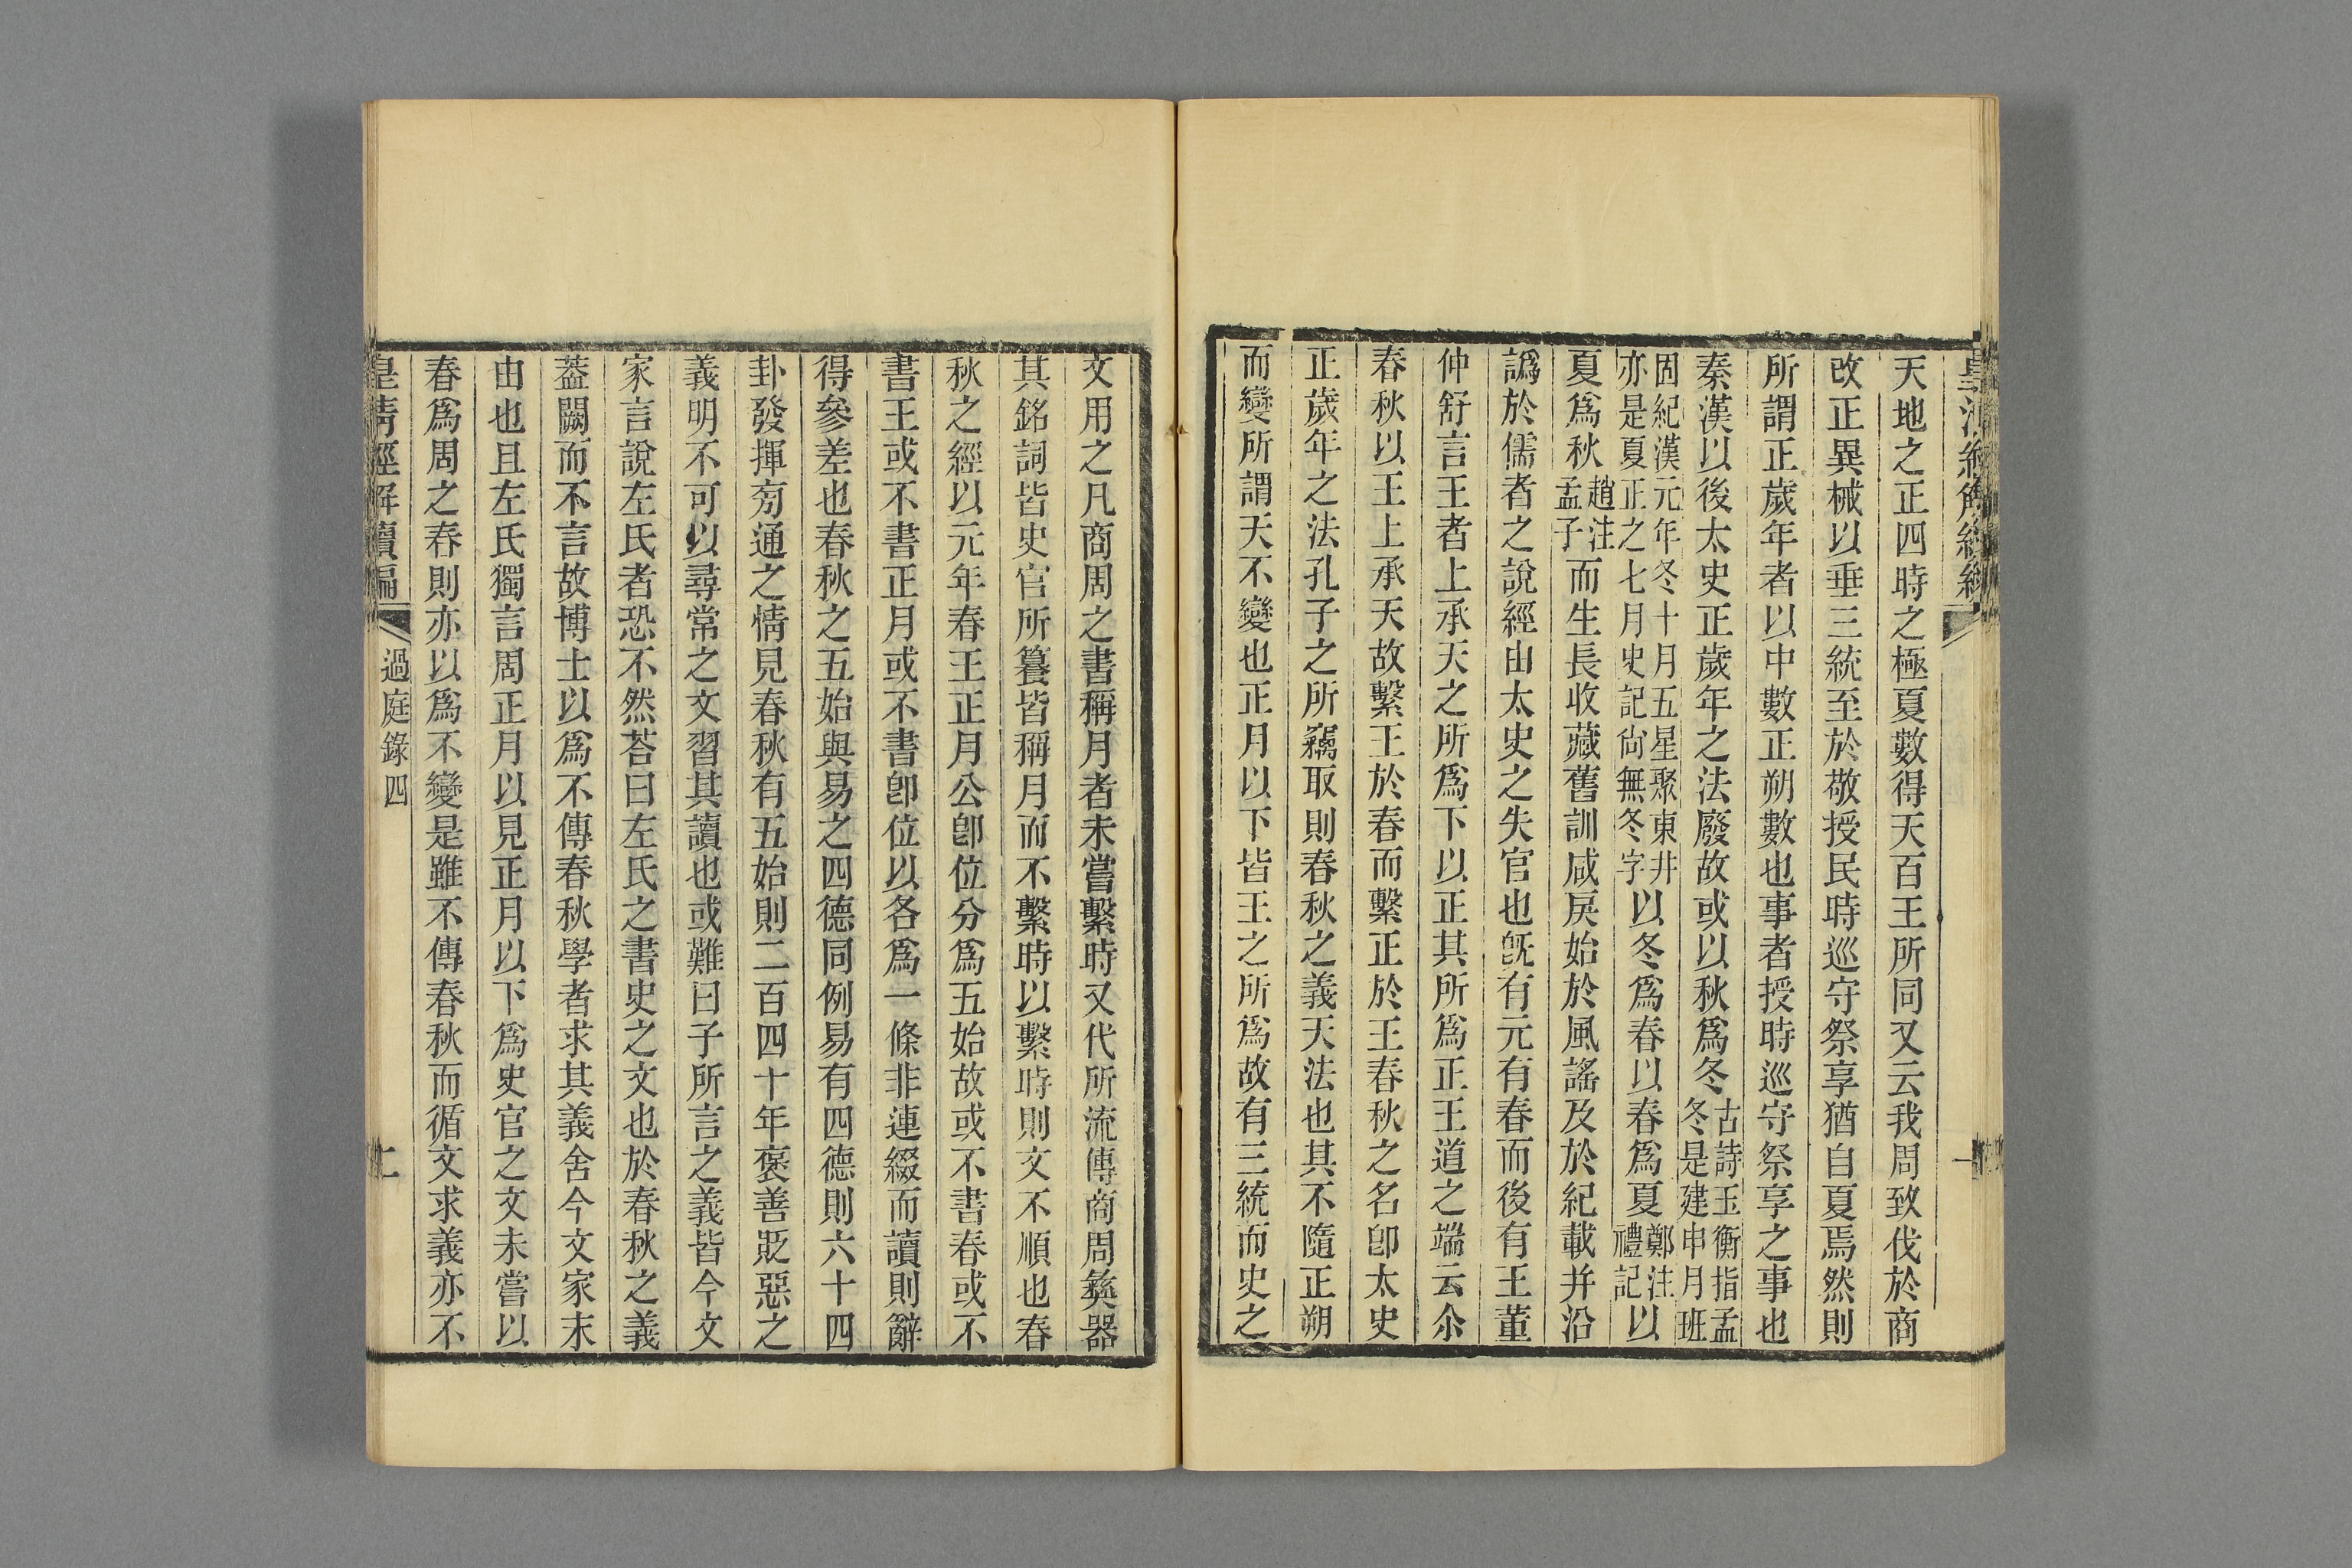 天地之正四時之極夏數得天百王所同又云我周致伐於商
改正異械以垂三統至於敬授民時巡守祭享猶自夏焉然則
所謂正歲年者以中數正朔數也事者授時巡守祭享之事也
秦漢以後太史正歲年之法廢故或以秋爲冬古詩玉衡指孟冬是建申月班
固紀漢元年冬十月五星聚東井亦是夏正之七月史記尙無冬字以冬爲春以春爲夏鄭注禮記以
夏爲秋趙注孟子而生長收藏舊訓咸戾始於風謠及於紀載并沿
譌於儒者之說經由太史之失官也旣有元有春而後有王董
仲舒言王者上承天之所爲下以正其所爲正王道之端云尒
春秋以王上承天故繫王於春而繫正於王春秋之名卽太史
正歲年之法孔子之所竊取則春秋之義天法也其不隨正朔
而變所謂天不變也正月以下皆王之所爲故有三統而史之
文用之凡商周之書稱月者未嘗繫時又代所流傳商周彝器
其銘詞皆史官所籑皆稱月而不繫時以繫時則文不順也春
秋之經以元年春王正月公卽位分爲五始故或不書春或不
書王或不書正月或不書卽位以各爲一條非連綴而讀則辭
得參差也春秋之五始與易之四德同例易有四德則六十四
卦發揮旁通之情見春秋有五始則二百四十年褒善貶惡之
義明不可以尋常之文習其讀也或難曰子所言之義皆今文
家言說左氏者恐不然荅曰左氏之書史之文也於春秋之義
蓋闕而不言故博士以爲不傳春秋學者求其義舍今文家末
由也且左氏獨言周正月以見正月以下爲史官之文未嘗以
春爲周之春則亦以爲不變是雖不傳春秋而循文求義亦不
皇清經解續編
過庭錄四
二